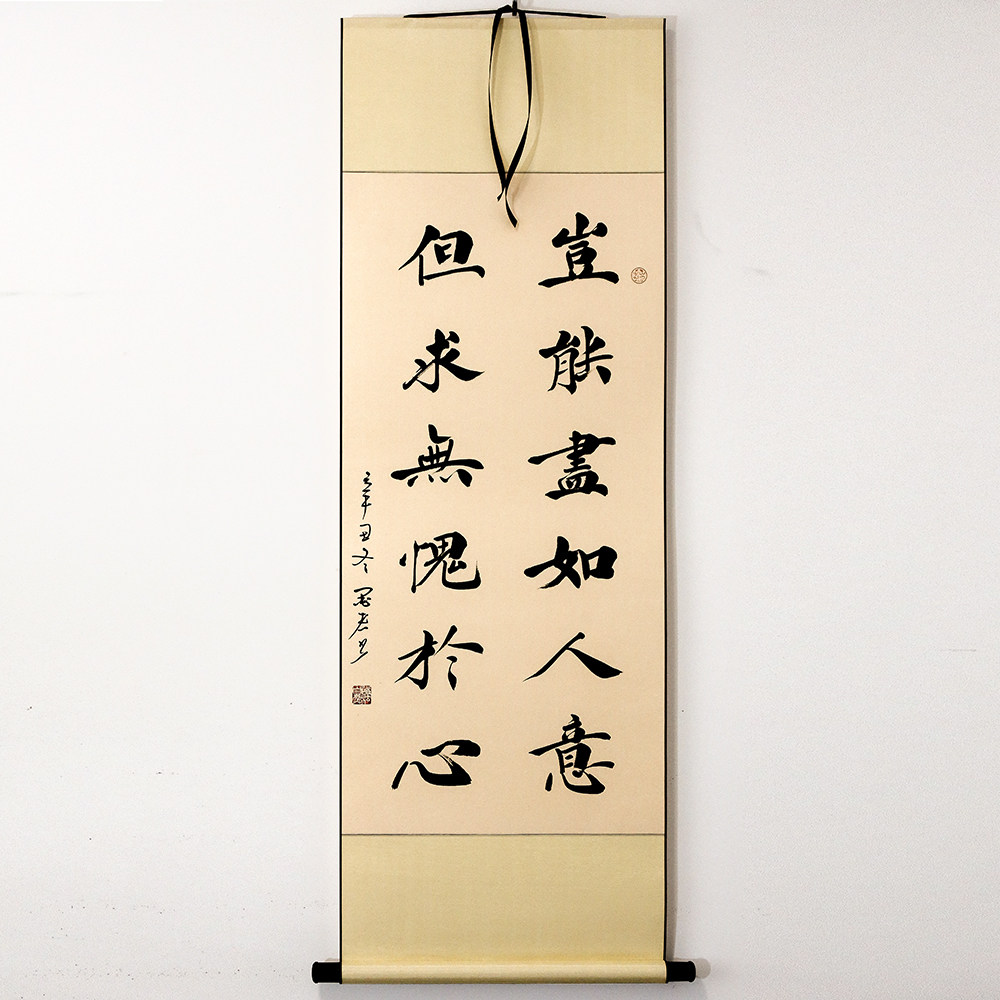 豈能盡如人意
但求無愧於心
辛丑冬